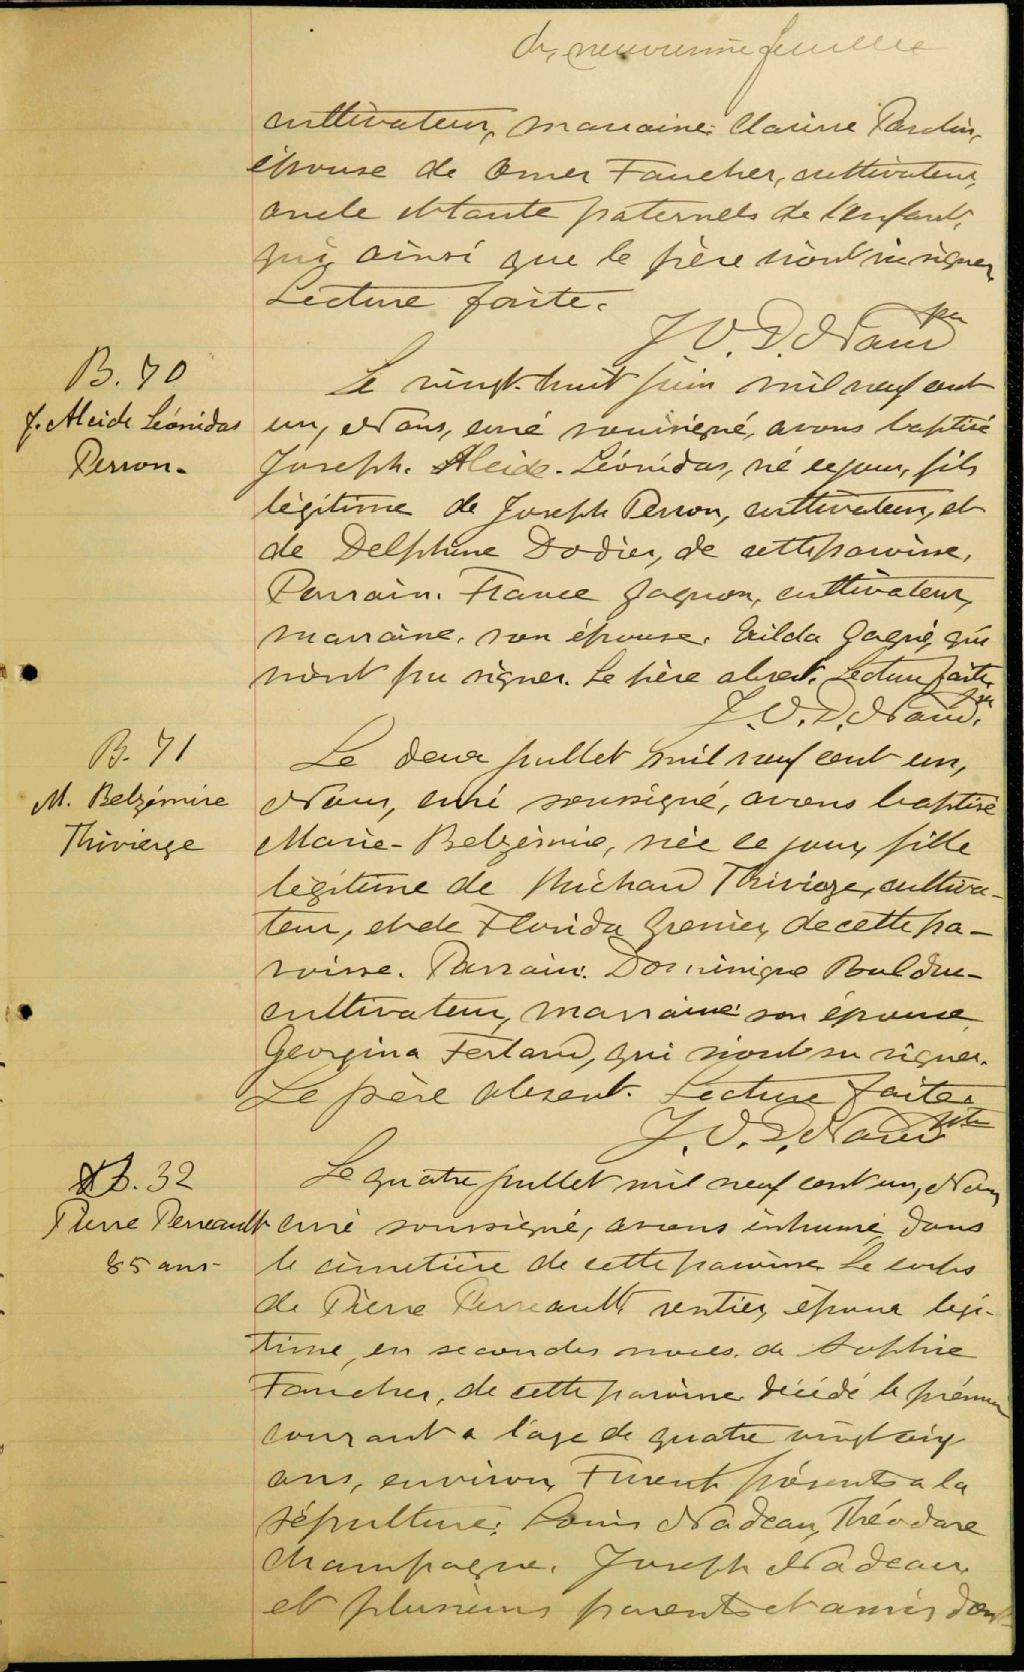 dix neuvième feuille
cultivateur, marraine: Clarisse Poulin,
épouse de Omer Faucher, cultivateur,
oncle et tante paternels de l'enfant,
qui ainsi que le père n'ont su signer.
Lecture faite.
J. V. D. Naud ptre
B. 70
J. Alcide Léonidas
Perron-
Le vingt-huit juin mil neuf cent
un, Nous, curé soussigné, avons baptisé
Joseph-Alcide-Léonidas, né ce jour, fils
légitime de Joseph Perron, cultivateur, et
de Delphine Dodier, de cette paroisse.
Parrain: France Gagnon, cultivateur,
marraine, son épouse, Exilda Gagné, qui
n'ont pu signer. Le père absent. Lecture faite
J. V. D. Naud, ptre
B. 71
M. Belzémire
Thivierge
Le deux juillet mil neuf cent un,
Nous, curé soussigné, avons baptisé
Marie-Belzémire, née ce jour, fille
légitime de Richard Thivierge, cultiva-
teur, et de Florida Grenier, de cette pa-
roisse. Parrain: Dominique Bolduc
cultivateur, marraine: son épouse
Georgina Ferland, qui n'ont su signer.
Le père absent. Lecture faite.
J. V. D. Naud ptre
S. 32
Pierre Perreault
85 ans-
Le quatre juillet mil neuf cent un, Nous
curé soussigné, avons inhumé dans
le cimetière de cette paroisse le corps
de Pierre Perreault, rentier, époux légi-
time, en secondes noces, de Sophie
Faucher, de cette paroisse décédé le premier
courant a l'age de quatre vingt cinq
ans, environ. Furent présents a la
sépulture: Louis Nadeau, Théodore
Champagne, Joseph Nadeau,
et plusieurs parents et amis dont